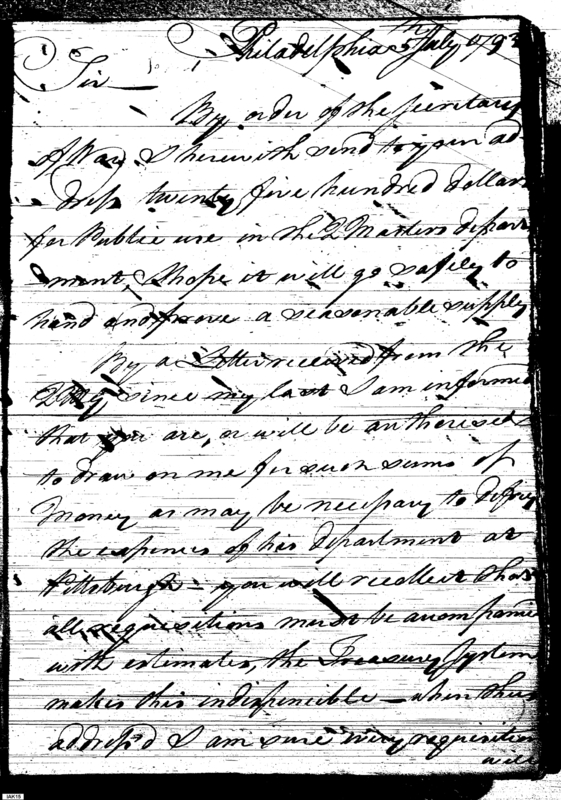 Philadelphia 5th July 1793
Sir
By order of the Secretary
of War I herewith send to your ad
dress twenty five hundred dollars
for Public use in the Q Masters depart
ment, I hope it will go safely to
hand and prove a seasonable supply
By a Letter received from the
QMG, since my last I am informed
that you are, or will be authorised
to draw on me for such sums of
Money as may be necessary to defray
the expences of his department at
Pittsburgh - you will recollect that
all requisitions must be accompanied
with estimates, the Treasury System
makes this indispencible - when thus
address'd I am sure every requisition
will
IAK18